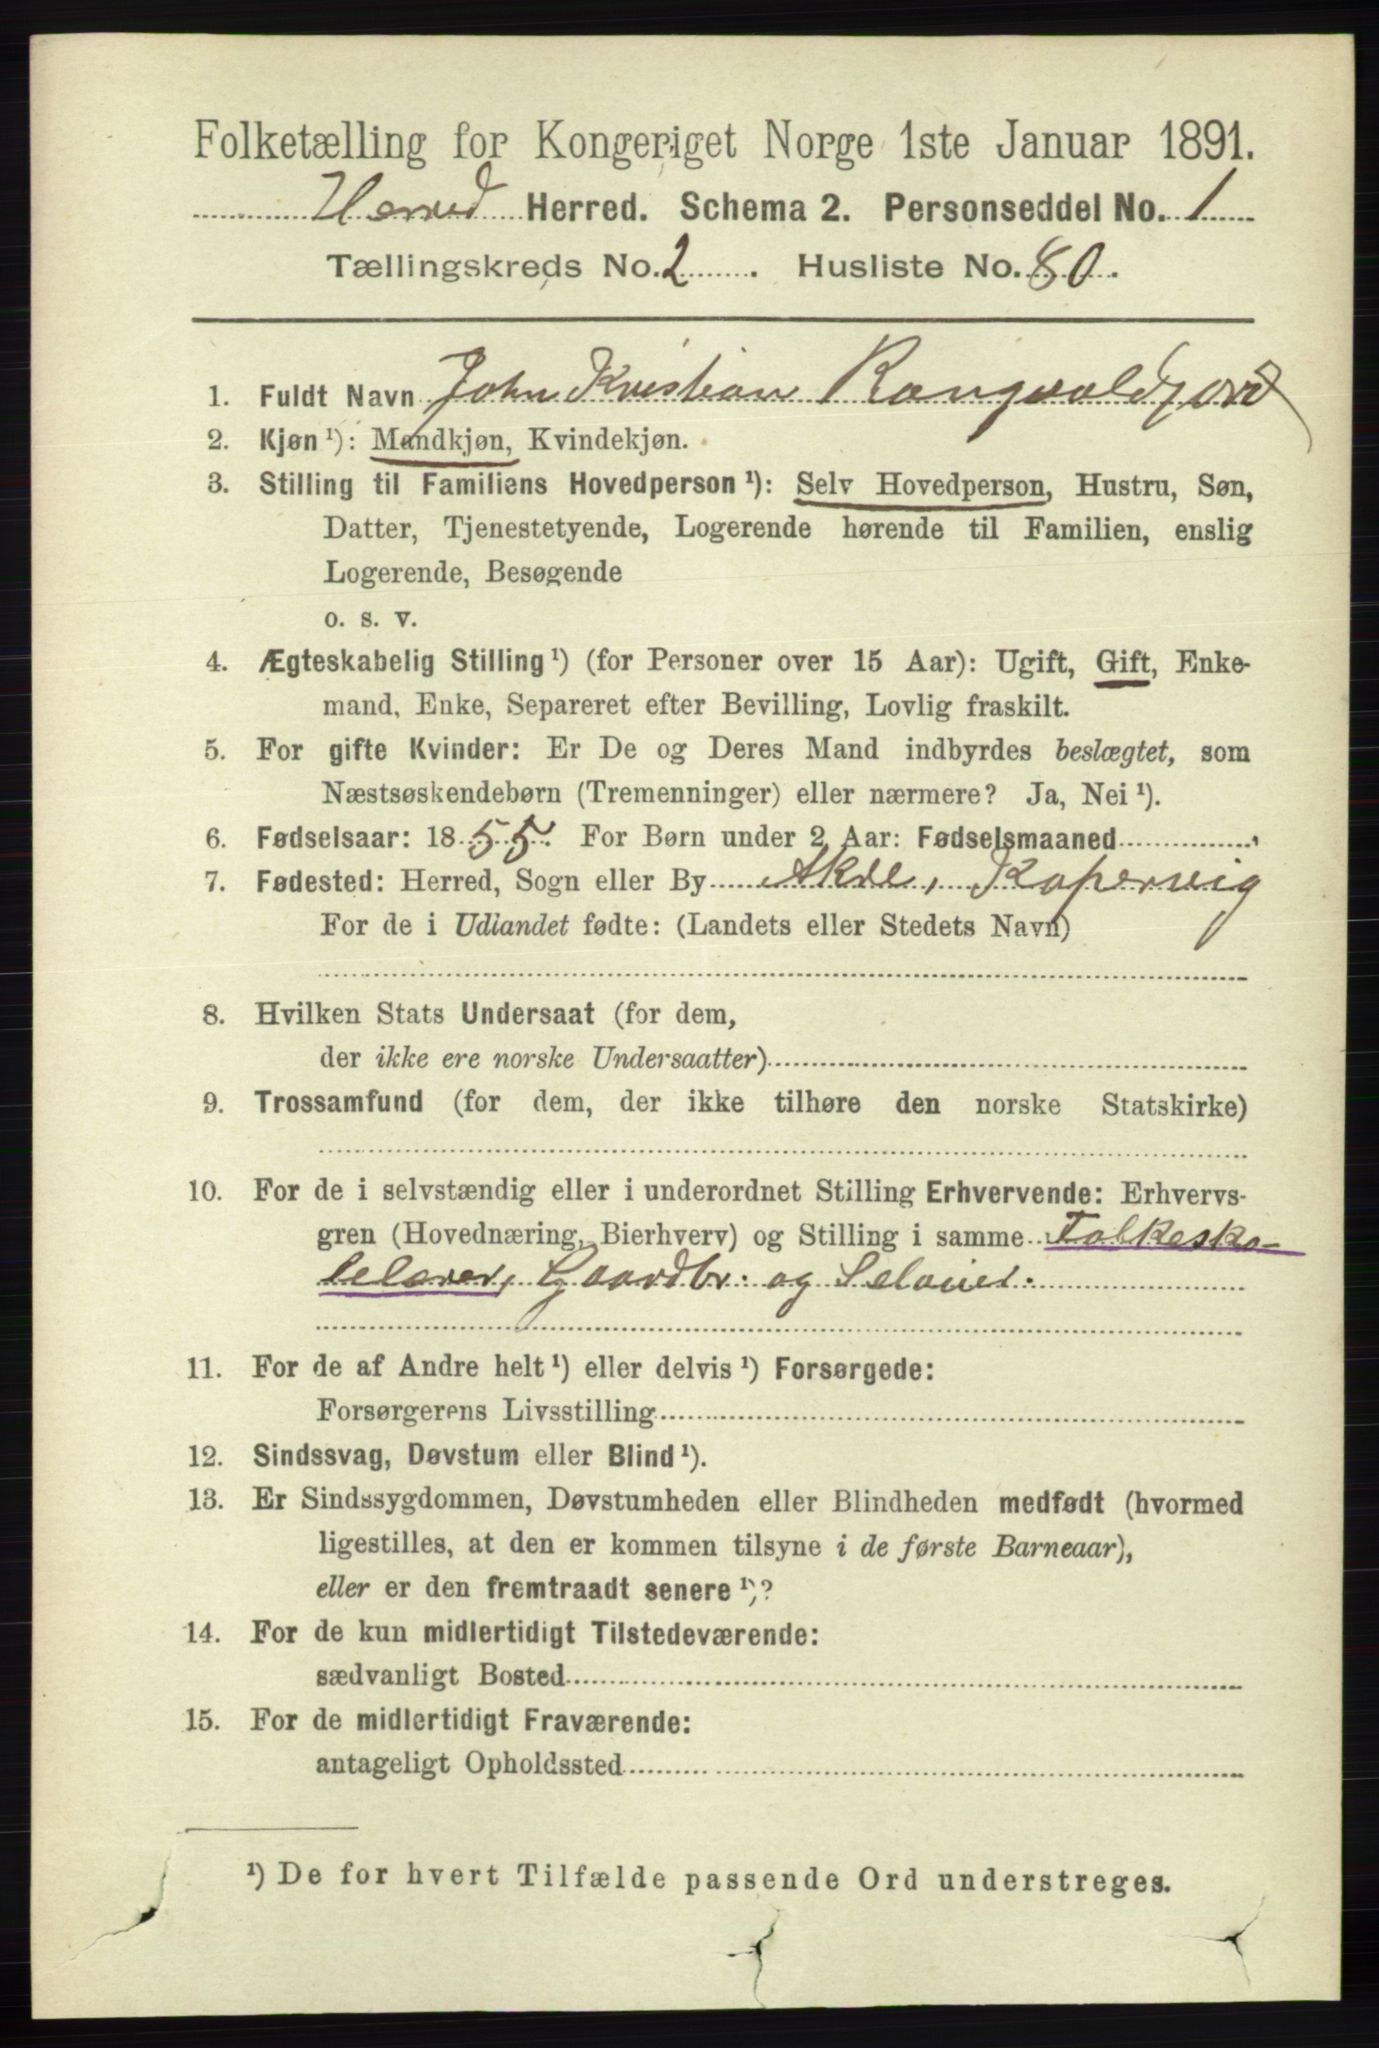 Folketælling for Kongeriget Norge 1ste Januar 1891.
Herred Herred. Schema 2. Personseddel No. 1
Tællingskreds No. 2. Husliste No. 80.
1. Fuldt Navn John Kristian Rangvaldjord
2. Kjøn ¹): Mandkjøn, Kvindekjøn.
3. Stilling til Familiens Hovedperson ¹): Selv Hovedperson, Hustru, Søn,
Datter, Tjenestetyende, Logerende hørende til Familien, enslig
Logerende, Besøgende
o. s. v.
4. Ægteskabelig Stilling ¹) (for Personer over 15 Aar): Ugift, Gift, Enke-
mand, Enke, Separeret efter Bevilling, Lovlig fraskilt.
5. For gifte Kvinder: Er De og Deres Mand indbyrdes beslægtet, som
Næstsøskendebørn (Tremenninger) eller nærmere? Ja, Nei ¹).
6. Fødselsaar: 1855. For Børn under 2 Aar: Fødselsmaaned
7. Fødested: Herred, Sogn eller By Akre, Kopervig
For de i Udlandet fødte: (Landets eller Stedets Navn)
8. Hvilken Stats Undersaat (for dem,
der ikke ere norske Undersaatter)
9. Trossamfund (for dem, der ikke tilhøre den norske Statskirke)
10. For de i selvstændig eller i underordnet Stilling Erhvervende: Erhvervs-
gren (Hovednæring, Bierhverv) og Stilling i samme Folkesko-
lelærer, Gaardbr. og Seloier.
11. For de af Andre helt ¹) eller delvis ¹) Forsørgede:
Forsørgerens Livsstilling
12. Sindssvag, Døvstum eller Blind ¹).
13. Er Sindssygdommen, Døvstumheden eller Blindheden medfødt (hvormed
ligestilles, at den er kommen tilsyne i de første Barneaar),
eller er den fremtraadt senere ¹)?
14. For de kun midlertidigt Tilstedeværende:
sædvanligt Bosted
15. For de midlertidigt Fraværende:
antageligt Opholdssted
¹) De for hvert Tilfælde passende Ord understreges.